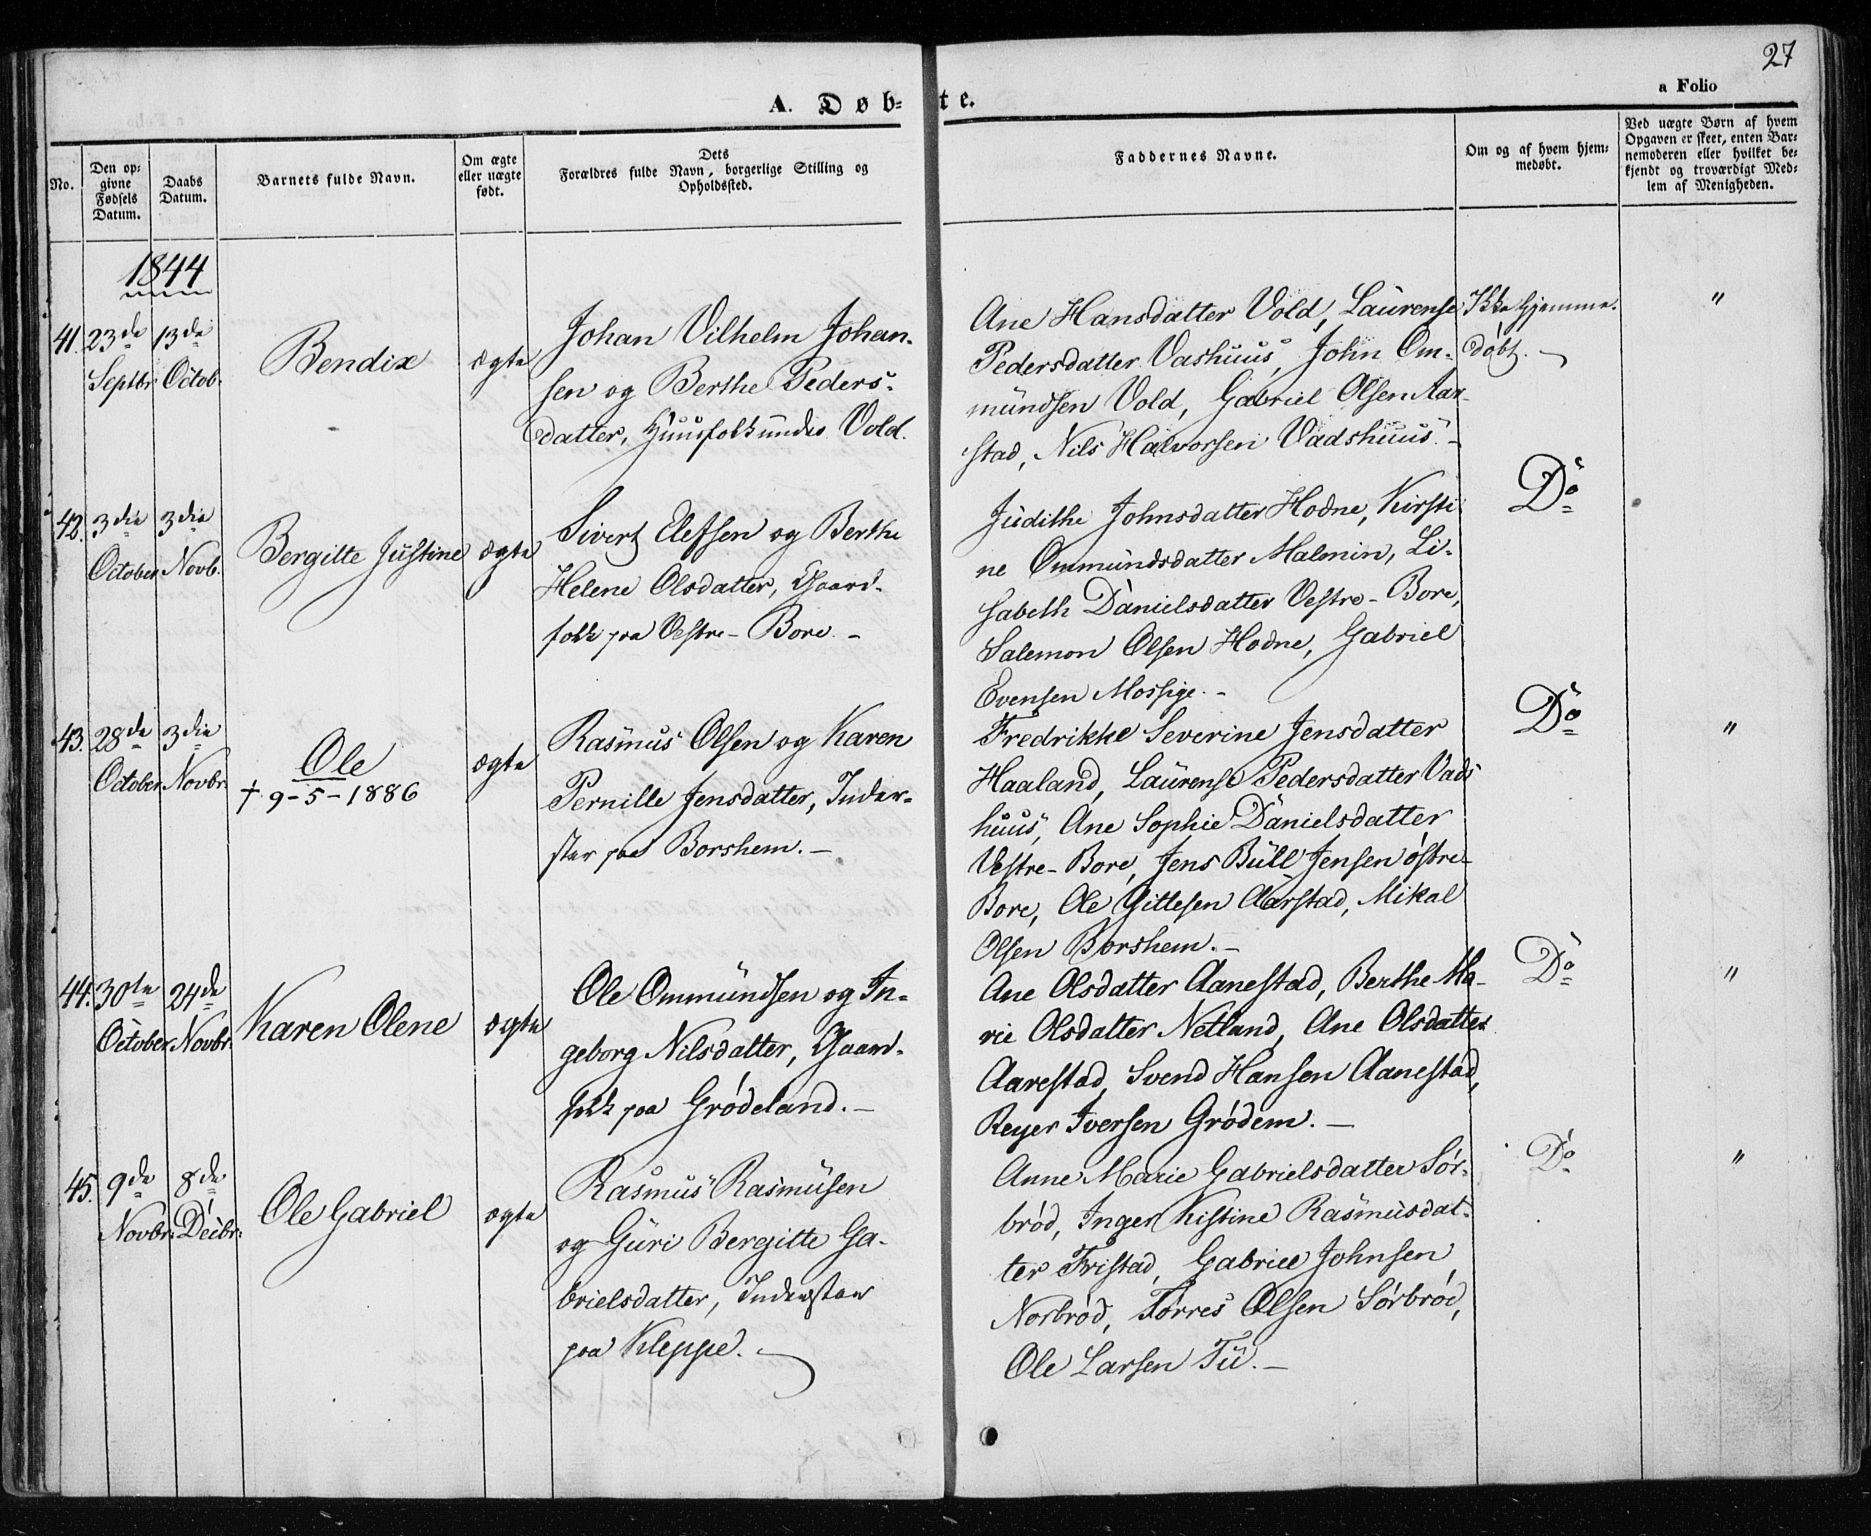 27
a Folio
A. Døb-
te.
No.
Den op-
givne
Fødsels
Datum.
Daabs
Datum.
Barnets fulde Navn.
Om ægte
eller uægte
født.
Dets
Forældres fulde Navn, borgerlige Stilling og
Opholdssted.
Faddernes Navne.
Om og af hvem hjem-
medøbt.
Ved uægte Børn af hvem
Opgaven er skeet, enten Bar-
nemoderen eller hvilket be-
kjendt og troværdigt Med-
lem af Menigheden.
1844
41.
23de
Septbr
13de
Octob.
Bendix
ægte
Johan Vilhelm Johan-
sen og Berthe Peders-
datter, Huusfolk under Vold.
Ane Hansdatter Vold, Laurense
Pedersdatter Vashuus, John Om-
mundsen Vold, Gabriel Olsen Aar-
stad, Nils Halvorsen Vadshuus.-
Ikke hjemme-
døbt. -
"
42.
3die
October
3die
Novb.
Bergitte Justine
ægte
Sivert Elefsen og Berthe
Helene Olsdatter, Gaard-
folk paa Vestre-Bore. -
Judithe Johnsdatter Hodne, Kirsti-
ne Ommundsdatter Malmin, Li-
sabeth Danielsdatter Vestre-Bore,
Salemon Olsen Hodne, Gabriel
Evensen Mossige. -
Do
43.
28de
October
3die
Novbr
Ole
† 9-5-1886
ægte
Rasmus Olsen og Karen
Pernille Jensdatter, Inder-
ster paa Borshem. -
Fredrikke Severine Jensdatter
Haaland, Laurense Pedersdatter Vads
huus, Ane Sophie Danielsdatter
Vestre-Bore, Jens Bull Jensen østre-
Bore, Ole Gittesen Aarstad, Mikal
Olsen Borshem. -
Do
"
44.
30te
October
24de
Novbr.
Karen Olene
ægte
Ole Ommundsen og In-
geborg Nilsdatter, Gaard-
folk paa Grødeland. -
Ane Olsdatter Aanestad, Berthe Ma-
rie Olsdatter Netland, Ane Olsdatter
Aarestad, Svend Hansen Aanestad,
Reyer Iversen Grødem. -
Do
"
45.
9de
Novbr.
8de
Decbr.
Ole Gabriel
ægte
Rasmus Rasmusen
og Guri Bergitte Ga-
brielsdatter, Inderster
paa Kleppe. -
Anne Marie Gabrielsdatter Sør-
brød, Inger Kistine Rasmusdat-
ter Fristad, Gabriel Johnsen
Norbrød, Tørres Olsen Sørbrød,
Ole Larsen Tu. -
Do
"